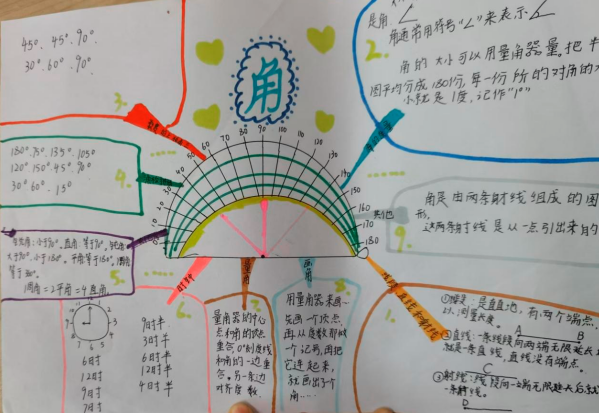 45°.45°.90°
30°.60°.90°
3.
角
2.
是角
角通常用符号"∠"来表示
角的大小可以用量角器量。把半
圆平均分成180份,每一份所的对角的大
小就是1度,记作"1°"
180°.75°.135°.105°
120°.150°.45°.90°
30°.60°.15°
4.
0 10 20 30 40 50 60 70 80 90 100 110 120 130 140 150 160 170 180
其他
角是由两条射线组成的图
形,
这两条射线是从一点引出来的
9.
5.
大于90°.小于180°.平角等于180°.周角
等于360°.
1周角=2平角=4直角
6.
时钟
9时半
3时半
6时
12时
9时
7时
6时半
12时半
9时半
4时半
7.
量角
量角器的中心
点和角的顶点
重合,0°刻度线
和角的一边重
合。另一条边
对齐度数
8.
画角
用量角器来画
先画一个顶点
再从度数那做
一个记号,再把
它连起来,
就画出了个
角…
1.
①线段:是直直地,有两个端点,
以测量长度。
A B
②直线:一条线段向两端无限延长
就是一条直线,直线没有端点。
C
③射线:线段向一端无限延长后就
一条射线。
D